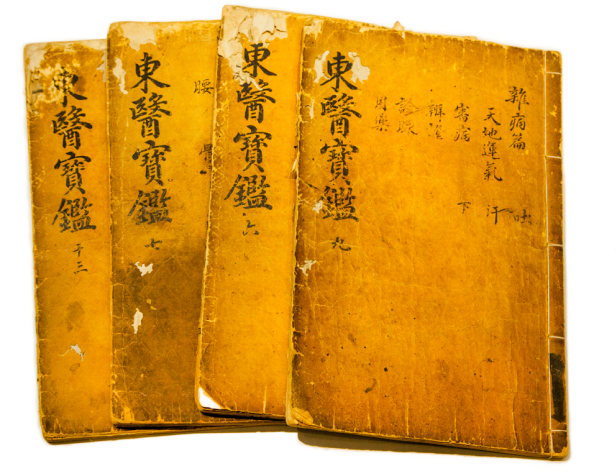 雜病篇 吐
天地運氣 汗
審病 下
辨證
診脉
用藥
東醫寶鑑 九
東醫寶鑑 六
腰
東醫寶鑑 七
東醫寶鑑 十三